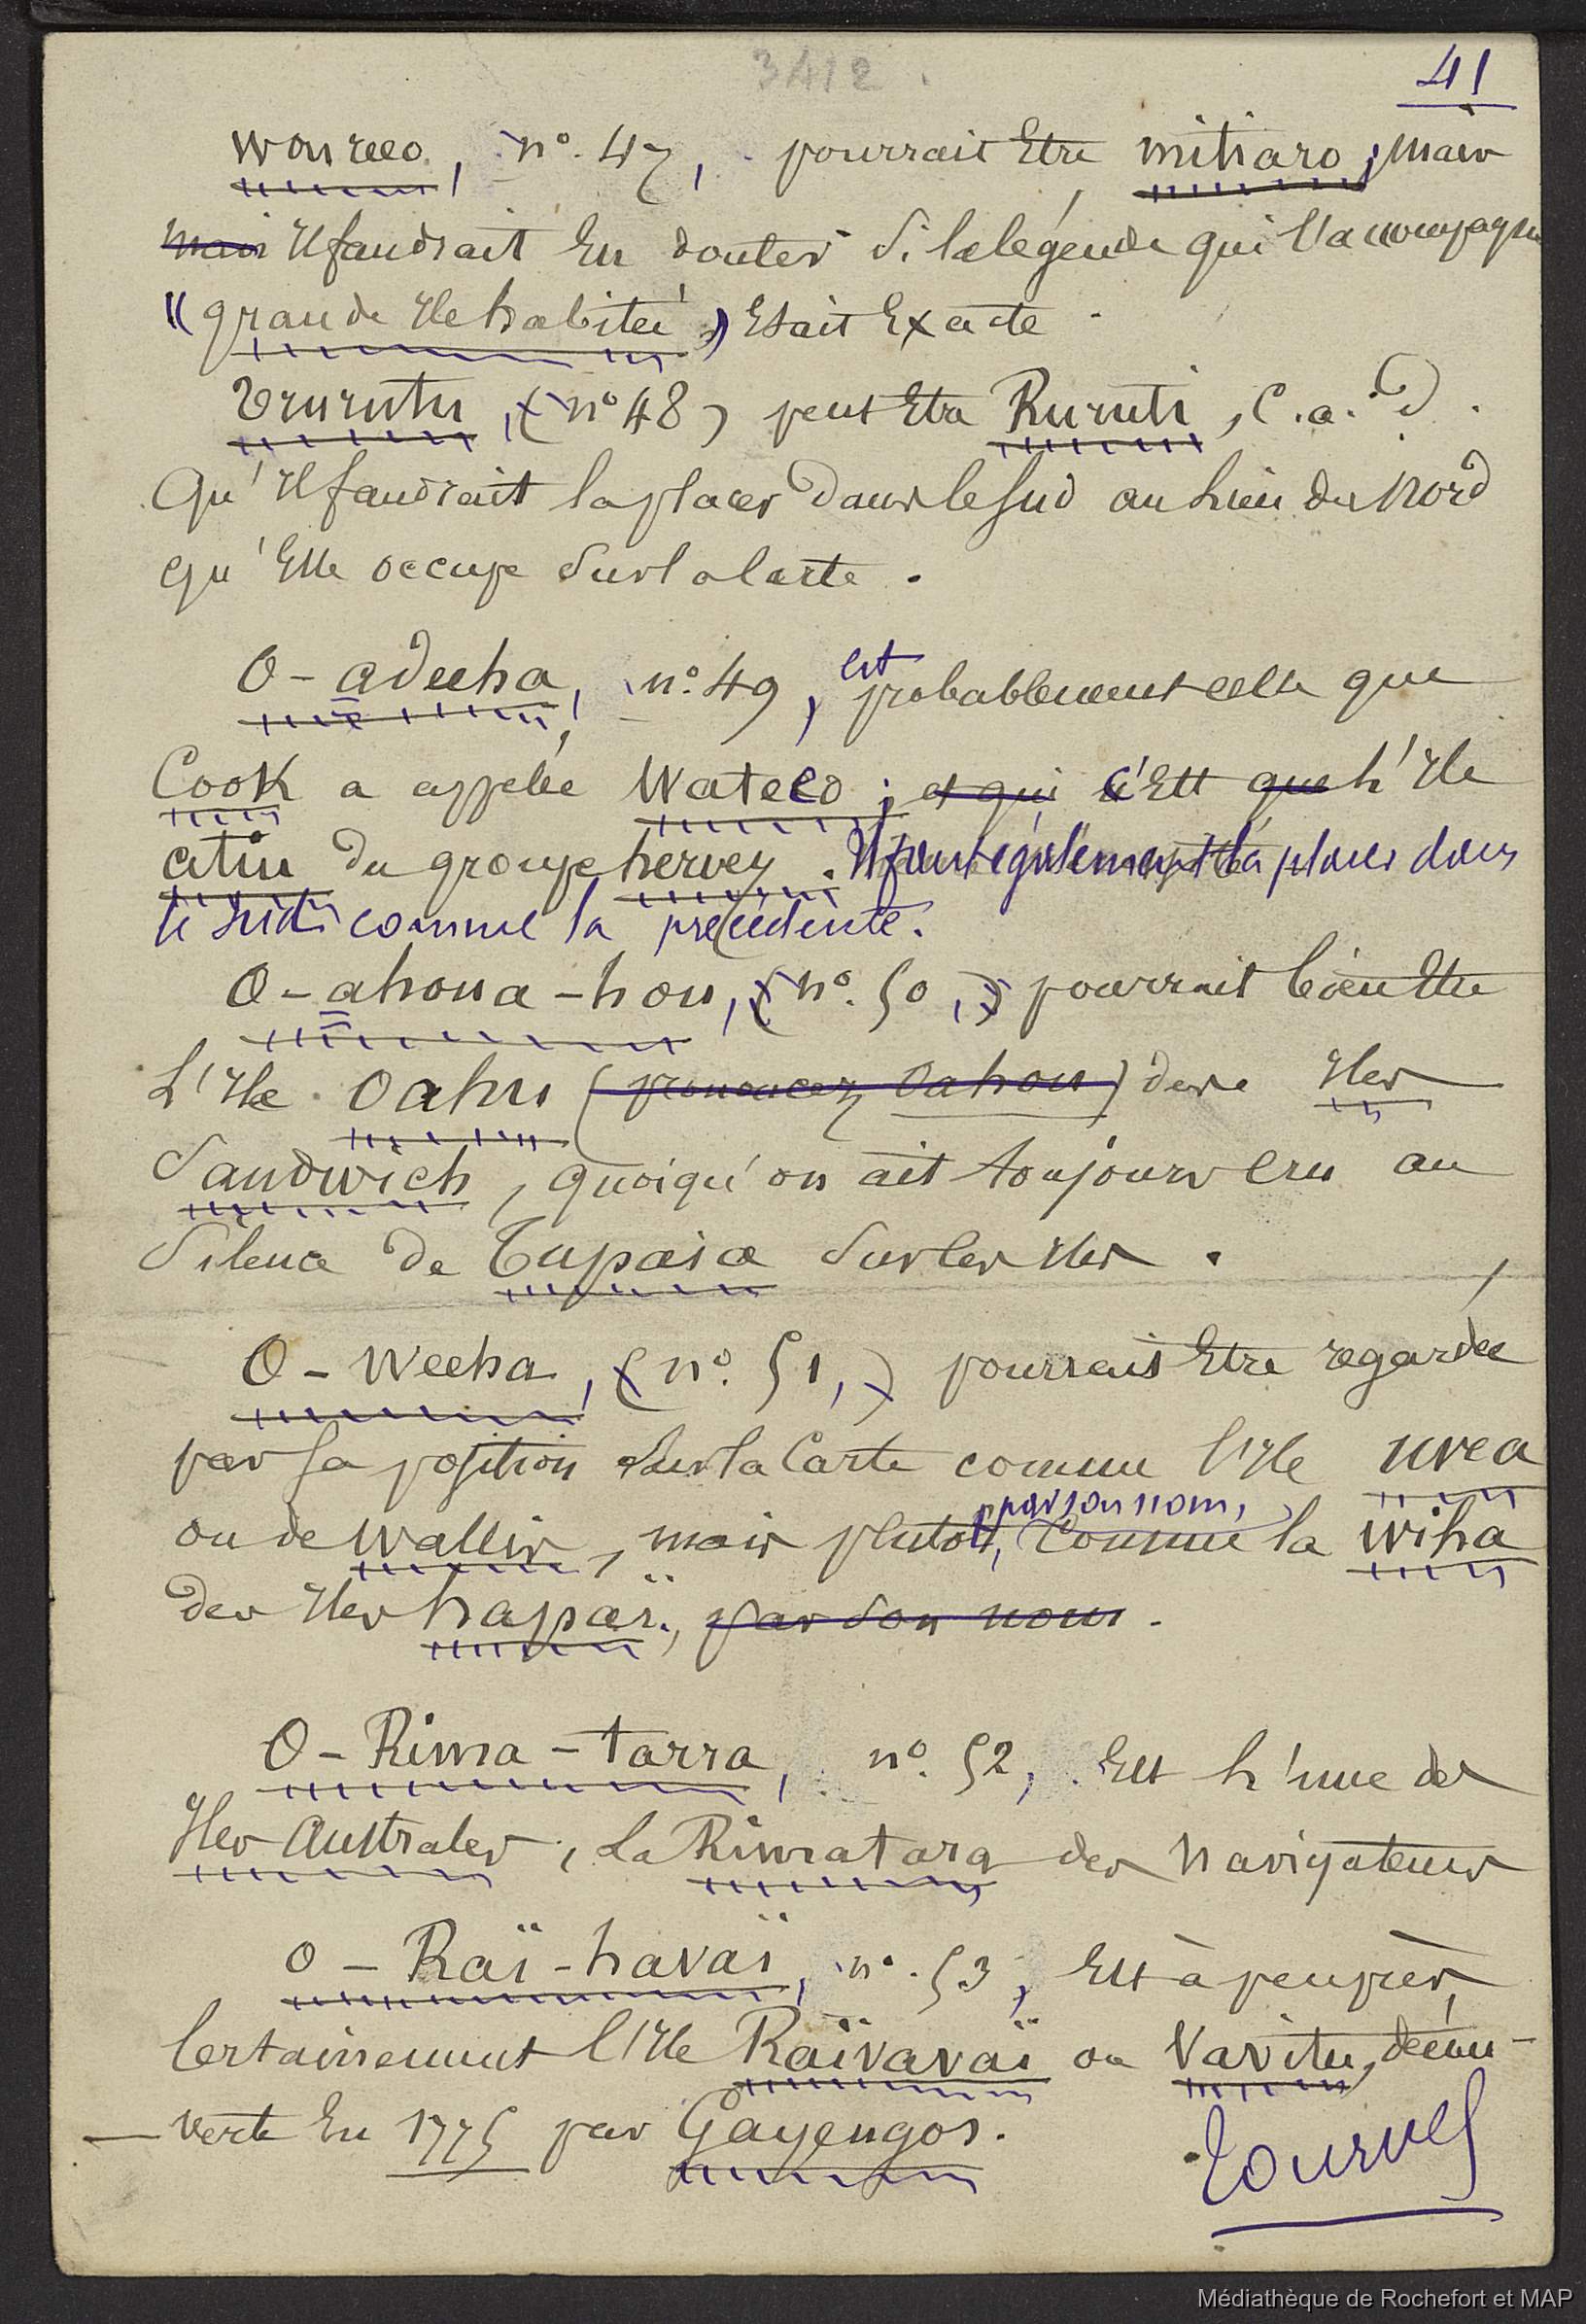 3412.
41
Woureeo, n° 47, pourrait Etre mitiaro; mais
mais Il faudrait En douter Si la légende qui l'accompagne
"(grande Ile habitée)" Etait Exacte.
Ururutu, (n° 48) peut Etre Ruruti, C.a.D.
Qu'Il faudrait la placer Dans le Sud au lieu du Nord
qu'Elle occupe Sur la Carte.
O-adeeha, n° 49, est probablement celle que
Cook a appelée Wateeo; et qui c'Est que l'Ile
atiu du groupe hervey. Il faut également la placer dans
le sud, comme la précédente.
O-ahoua-hou, (n° 50,) pourrait bien Etre
L'Ile Oahu (prononcez Oahou) des Iles
Sandwich, quoiqu'on ait toujours Cru au
Silence de Tupaia Sur les Iles.
O-Weeha, (n° 51,) pourrait Etre regardée
par Sa position Sur la Carte comme l'Ile uvea
ou de Wallis, mais plutôt, par son nom, comme la Wiha
des Iles hapaï, par Son nom.
O-Rima-tarra, n° 52, Est l'une des
Iles Australes, La Rimatara des Navigateurs
O-Raï-havaï, n° 53, Est à peu près,
Certainement l'Ile Raïvavaï ou Vavitu, décou-
verte En 1775 par Gayengos.
tournez
Médiathèque de Rochefort et MAP